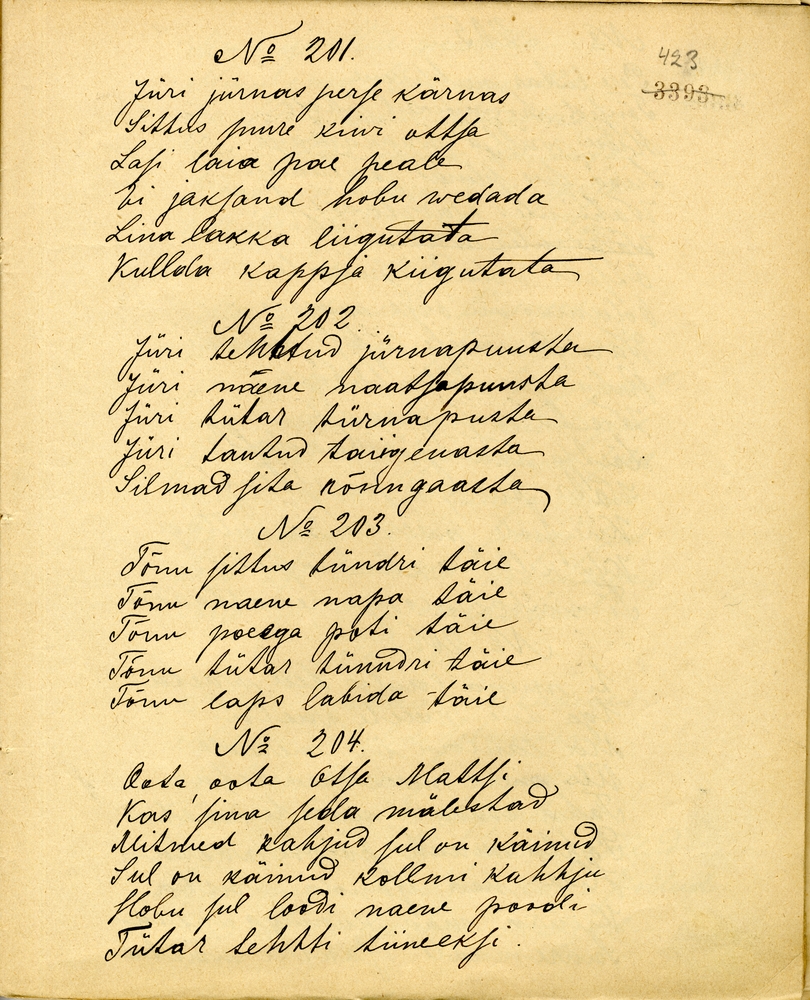 № 201.
423
3393
Jüri jürnas perse kärnas
Sittus suure kiwi ottsa
Lasi laia pae peale
Ei jaksand hobu wedada
Lina lakka liigutata
Kullda kappja kiigutata
№ 202
Jüri tehhtud jürnapuusta
Jüri näene naatsapuusta
Jüri tütar türnapusta
Jüri tautud
Silmad sita rõsungaasta
№ 203.
Tõnu sittus tündri täie
Tõnu naene napa täie
Tõnu poeega poti täie
Tõnu tütar tünndri täie
Tõnu laps labida täie
№ 204.
Oota, oota Otsa Mattsi
Kas sina seda mälestad
Mitmed kahjud sul on käinud
Sul on käinud kollmi kahhju
Hobu sul loodi naene poodi
Tütar tehhti tiineeksi.